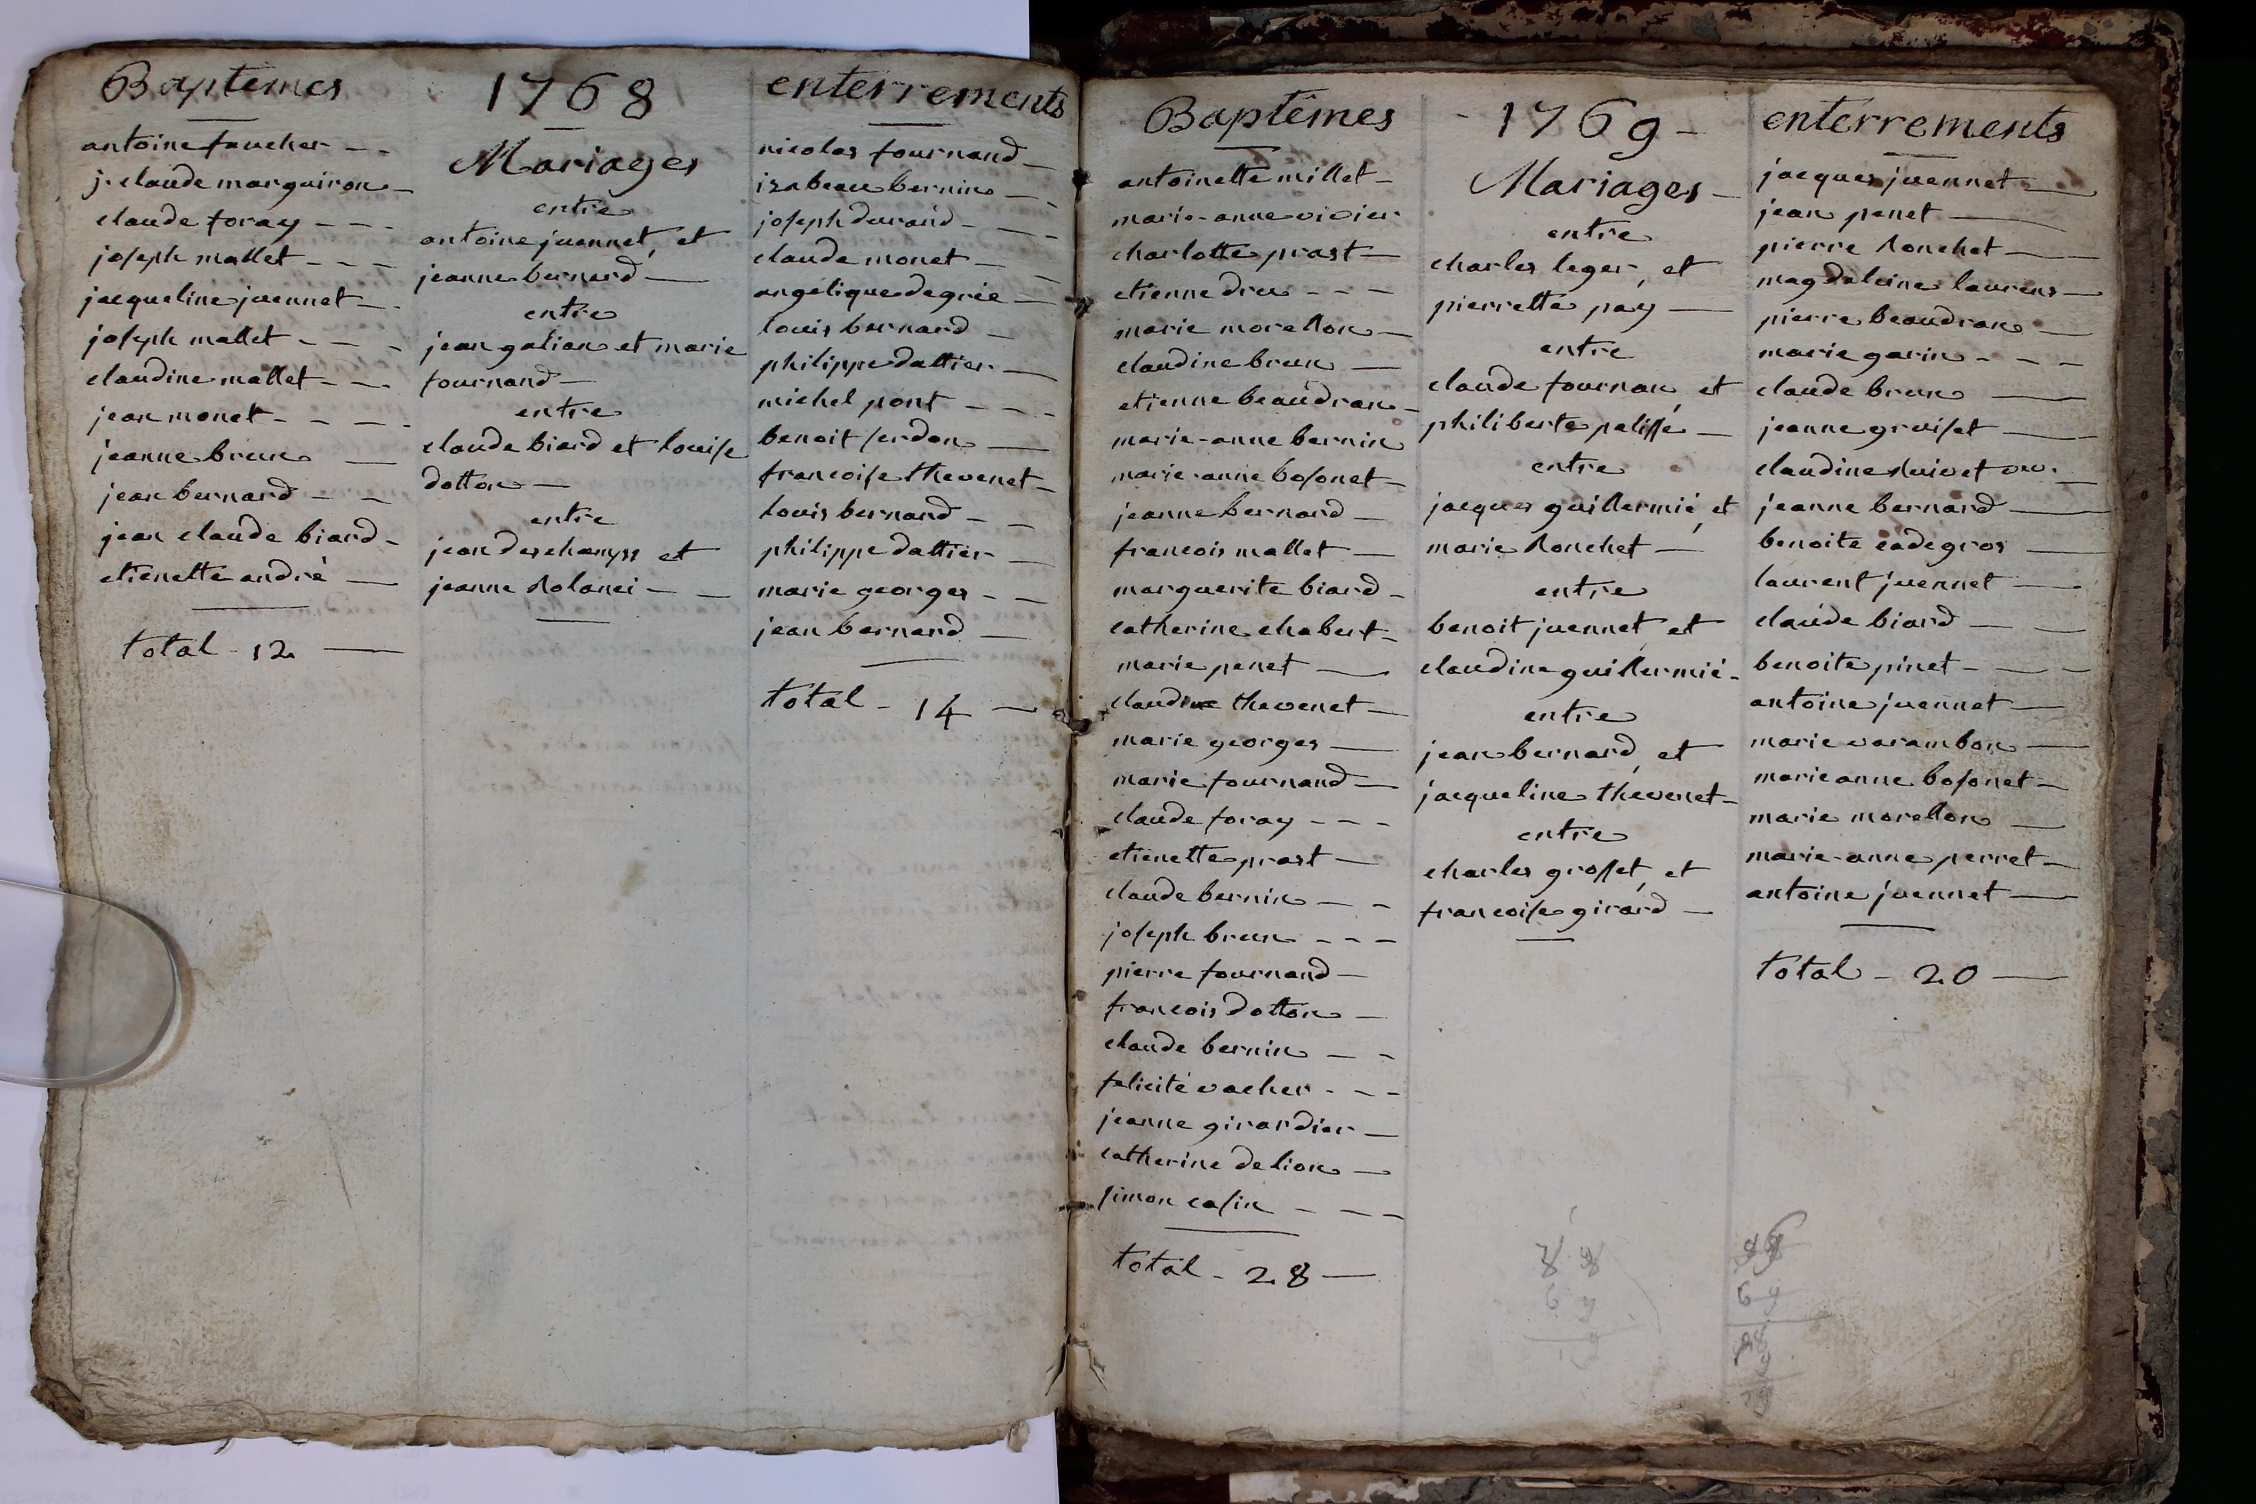 Baptemes
antoine faucher
j. claude marguiron
claude foray
joseph mallet
jacqueline juennet
joseph mallet
claudine mallet
jean monet
jeanne brun
jean bernard
jean claude biard
etienette andré
total - 12
1768
Mariages
entre
antoine juennet, et
jeanne bernard
entre
jean galian et marie
fournand
entre
claude biard et louise
dotton
entre
jean deschamps et
jeanne Rolanci
enterrements
nicolas fournand
izabeau bernin
joseph durand
claude monet
angelique degrée
louis bernard
philippe dattier
michel pont
benoit serdon
francoise thevenet
louis bernard
philippe dattier
marie georges
jean bernard
total - 14
Baptêmes
antoinette millet
marie-anne vivier
charlotte prost
etienne dru
marie morellon
claudine brun
etienne beaudran
marie-anne bernin
marie-anne bosonet
jeanne bernard
francois mallet
marguerite biard
catherine chabert
marie penet
claudine thevenet
marie georges
marie fournand
claude foray
etienette prost
claude bernin
joseph brun
pierre fournand
francois dotton
claude bernin
felicité vacher
jeanne girardier
catherine delion
simon casin
total - 28
- 1769 -
Mariages
entre
charles leger, et
pierrette pay
entre
claude fournan, et
philiberte pelisse
entre
jacques guillermié, et
marie Ronchet
entre
benoit juennet, et
claudine guillermié
entre
jean bernard, et
jacqueline thévenet
entre
charles grosset, et
francoise girard
enterrements
jacques juennet
jean penet
pierre Ronchet
magdeleine laurens
pierre beaudran
marie garin
claude brun
jeanne gruiset
claudine Ruivet
jeanne bernard
benoite cadegros
laurent juennet
claude biard
benoite pinet
antoine juennet
marie varambon
marie anne bosonet
marie morellon
marie-anne perret
antoine juennet
total - 20